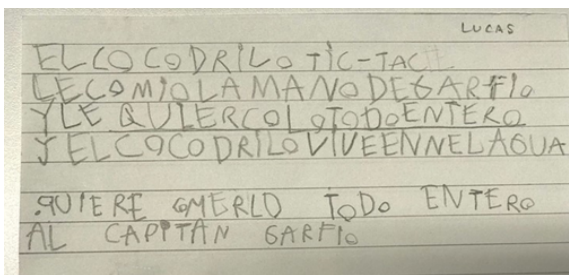 LUCAS
EL COCODRILO TIC-TAC
LE COMIO LA MANO DE GARFIO
Y LE QUIERCOLOTODOENTERO
Y EL COCODRILO VIVE EN NEL AGUA
QUIERE COMERLO TODO ENTERO
AL CAPITÁN GARFIO